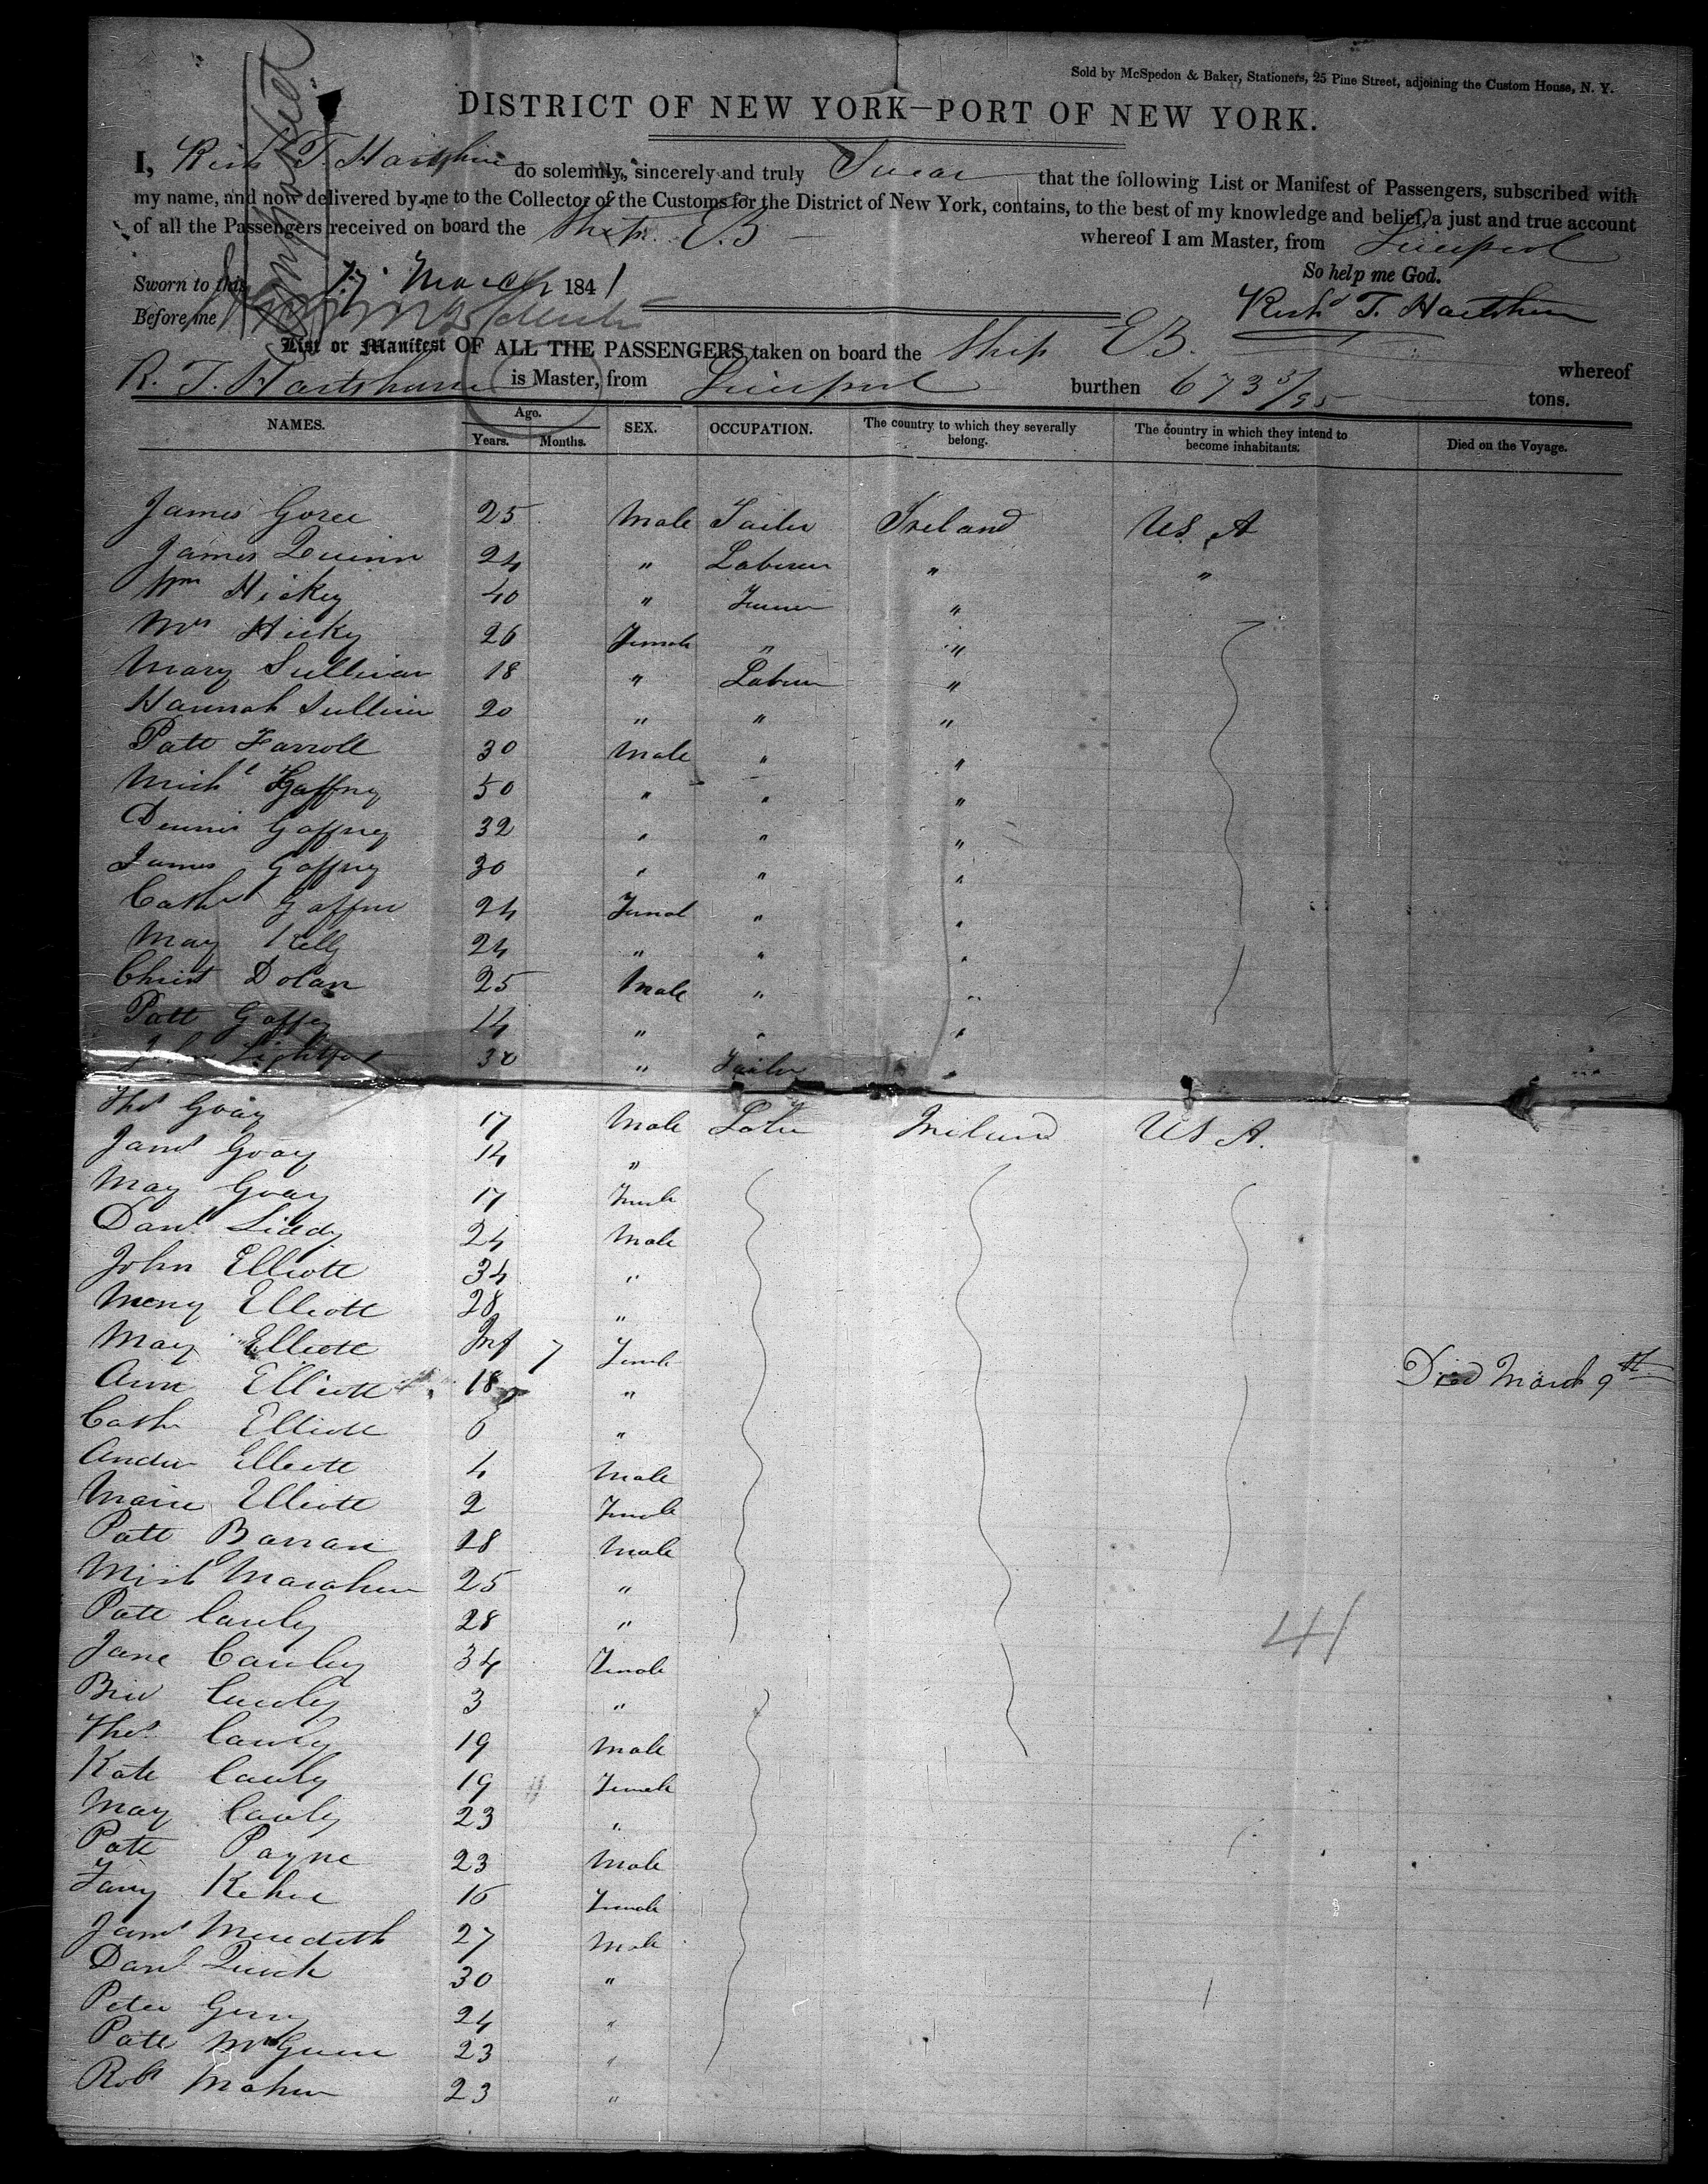 Sold by McSpedon & Baker, Stationers, 25 Pine Street, adjoining the Custom House, N. Y.
DISTRICT OF NEW YORK—PORT OF NEW YORK.
I, Rich T. Hartshine do solemnly, sincerely and truly Swear that the following List or Manifest of Passengers, subscribed with
my name, and now delivered by me to the Collector of the Customs for the District of New York, contains, to the best of my knowledge and belief, a just and true account
of all the Passengers received on board the Ship E.B whereof I am Master, from Liverpool
So help me God.
Sworn to this 17 March 1841
Richd T. Hartshun
Before me
List or Manifest OF ALL THE PASSENGERS taken on board the Ship EB. whereof
R. T. Hartshun is Master, from Liverpool burthen 673 3/95 tons.
NAMES. Age. Years. Months. SEX. OCCUPATION. The country to which they severally belong. The country in which they intend to become inhabitants. Died on the Voyage.
James Goree 25 Male Tailor Ireland U.S. A
James Quinn 24 " Laborer " "
Wm Hickey 40 " "
Mrs Hicky 26 Female " "
Mary Sullivan 18 " Labourer "
Hannah Sullivan 20 " " "
Patt Farroll 30 Male " "
Michl Gaffney 50 " " "
Dennis Gaffney 32 " " "
James Gaffney 30 " " "
Cath Gaffne 24 Female " "
May Kelly 24 " " "
Christ Dolan 25 Male " "
Patt Gaffey 14 " " "
John Lightfoot 30 " Tailor "
Thos Goay 17 Male Labr Ireland US A.
Jams Goay 14 "
May Goay 17 Female
Danl Liddy 24 Male
John Elliott 34 "
Elliott 28 "
May Elliott Inf 7 Female Died March 9th
Ann Elliott 18 "
Cath Elliott 6 "
Andw Elliott 4 Male
Elliott 2 Female
Patt 28 Male
25 "
Patt Cauly 28 "
Jane Cauley 34 Female
Cauley 3 "
Thos Cauly 19 Male
Kate Cauly 19 " Female
May Cauly 23 "
Patt Payne 23 Male
Fany Kehoe 16 Female
Jams Meredith 27 Male
Danl Quirk 30 "
Peter 24 "
Patt 23 "
Robt Maher 23 "
41